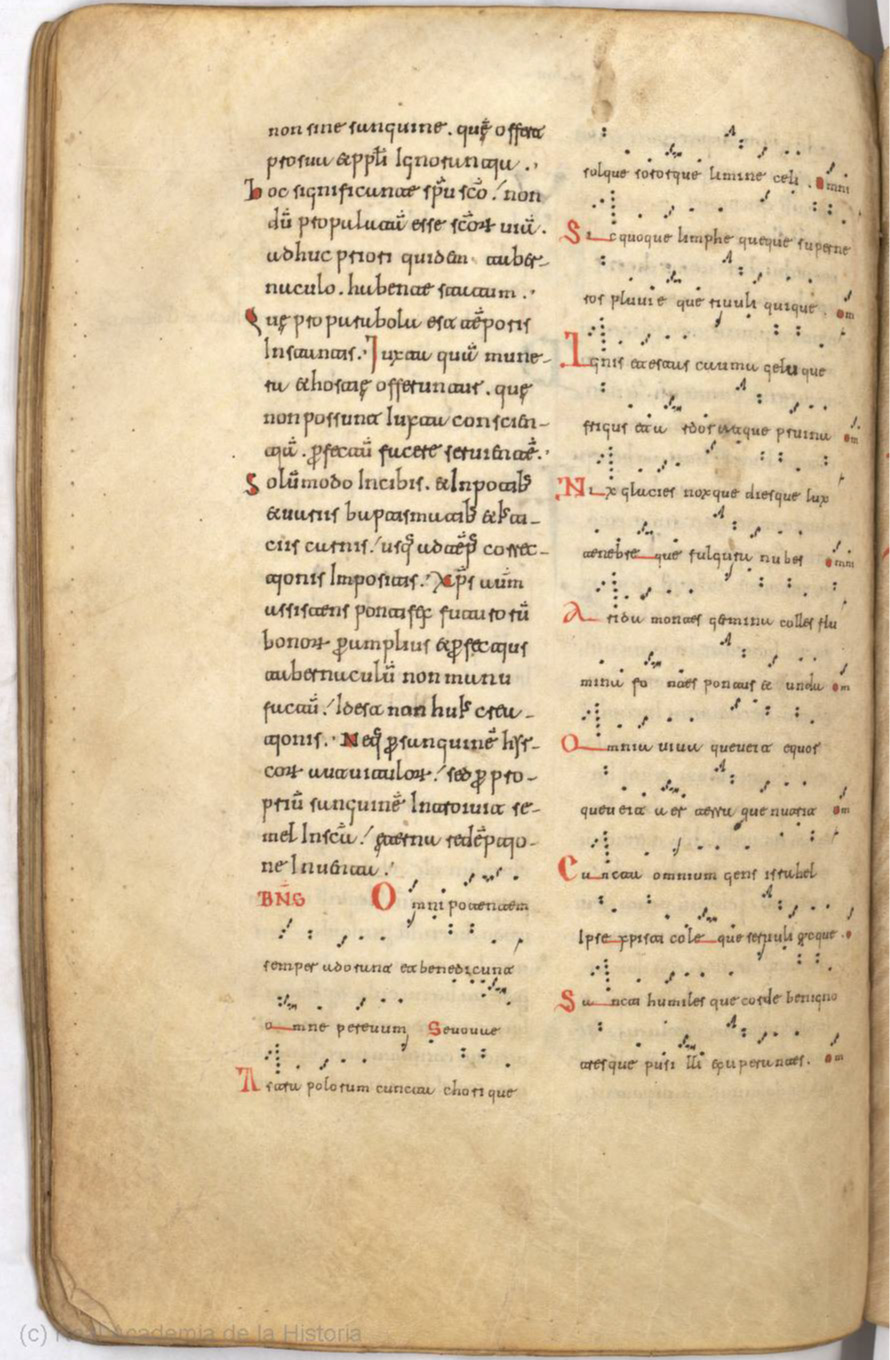 non sine sanguine. quę offerat
pro sua & ppłi Ignorantia.
Hoc significante spū sc̄o. non
dū propalatā esse sc̄or uiā.
adhuc priori quidem taber-
nuculo. habente statum.
Quę parabola est tēporis
Instantis. Iuxta quā mune-
ra & hostię offeruntur. quę
non possunt Iuxta conscien-
tiā. ꝑfectū facere seruientē.
Solūmodo Incibis. & Inpotib;
& uariis baptismatib; & iusti-
ciis carnis. usq; ad tēp correc-
tionis Impositis. Xp̄s aūm
assistens pontifex futuroꝝū
bonoꝝ ꝑamplius & ꝑfectius
tabernaculū non manu
factū. Idest non huis crea-
tionis. Neq; ꝑ sanguinē hir-
coꝝ aut uituloꝝ. sed ꝑ pro-
priū sanguinē Introiuit se-
mel Insc̄a. ęterna redēptio-
ne Inuenta.
BNS Omnipotentem
semper adorant et benedicunt
omne per euum Seuouae
Astra polorum cuncta chorique
solque sororque limine celi. omni
Sic quoque limphe queque superne
ros pluuie que riuuli quique. om
Ignis et estus cauma geluque
frigus et ardor atque pruina om
Nix glacies noxque diesque lux
tenebre que fulgura nubes omni
Arida montes germina colles flu
mina fontes pontus & unda om
Omnia uiua que ueit equor
que ueit aer terra que nutrit om
Cuncta omnium gens israhel
Ipse xpisti cole que seruuli q̄cque. o
Sancti humiles que corde benigno
tresque pueri lli exuperantes. om